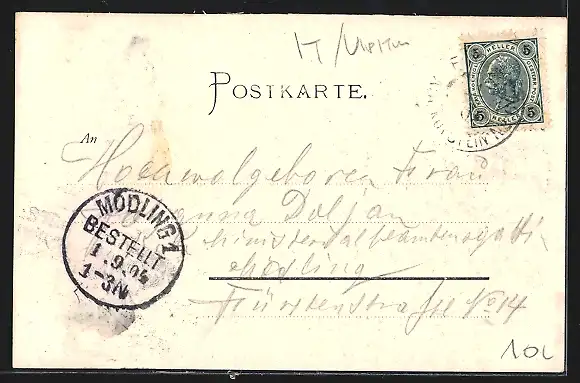 POSTKARTE.
5 HELLER 5
5 HELLER 5
An
Hochwolgeboren Frau
Anna Doljan
Ministerialbeamtensgattin
Mödling
Fürstenstraße No 14
MÖDLING 1
BESTELLT
1.9.04
1-3N
10L